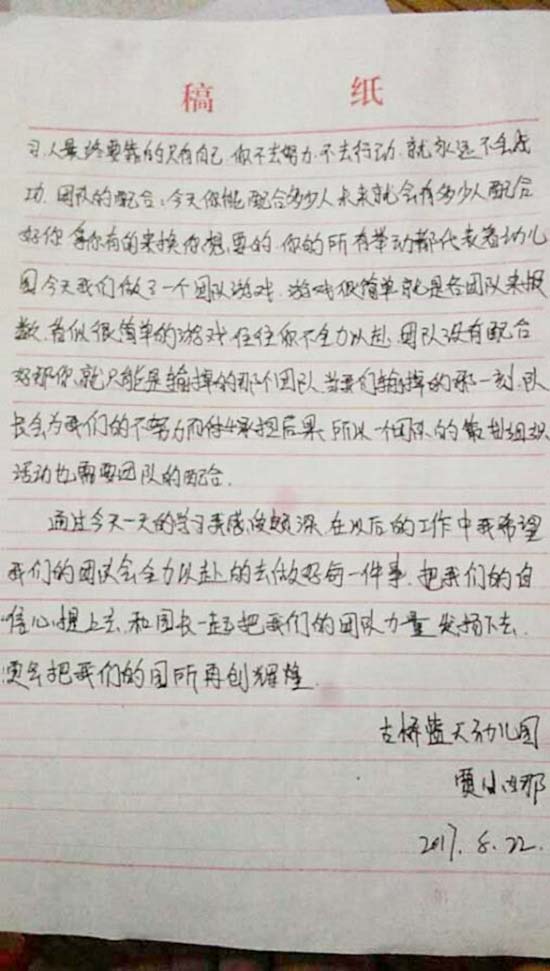 稿 纸
习,人最终要靠的只有自己,你不去努力,不去行动,就永远不会成
功,团队的配合:今天你能配合多少人未来就会有多少人配合
好你,拿你有的来换你想要的,你的所有举动都代表着幼儿
园今天我们做了一个团队游戏,游戏很简单就是各团队来报
数,看似很简单的游戏,往往你不全力以赴,团队没有配合
好那你就只能是输掉的那个团队当我们输掉的那一刻,队
长会为我们的不努力而承担后果,所以一个团队的策划组织
活动也需要团队的配合.
通过今天一天的学习我感受颇深,在以后的工作中我希望
我们的团队会全力以赴的去做好每一件事,把我们的自
信心提上去,和园长一起把我们的团队力量发扬下去,
更会把我们的园所再创辉煌.
古桥蓝天幼儿园
贾 那
2017.8.22.